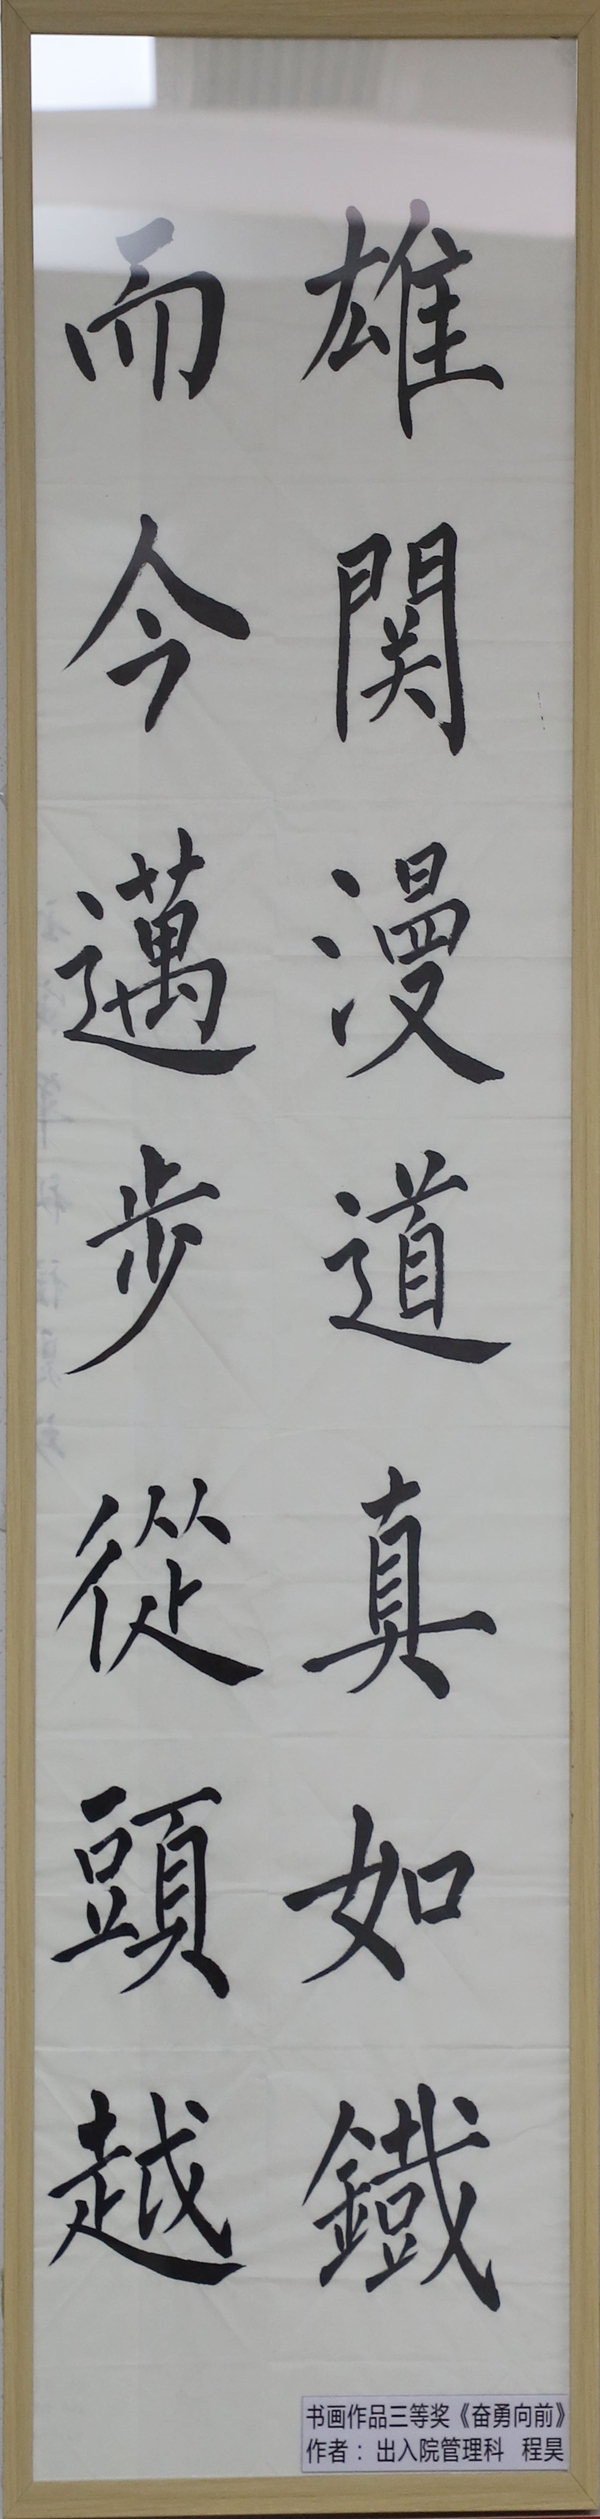 雄関漫道真如鐵
而今邁步從頭越
书画作品三等奖《奋勇向前》
作者：出入院管理科 程昊